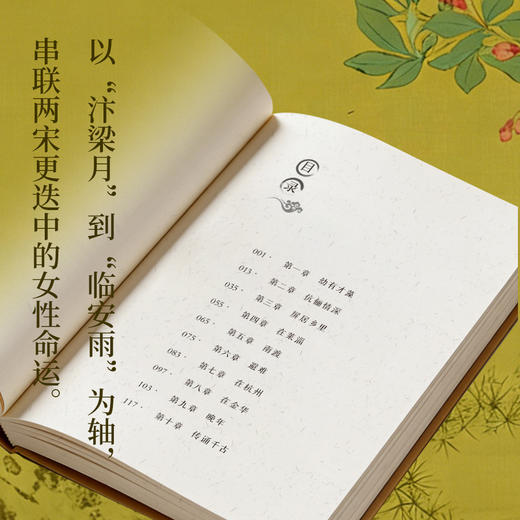 以“汴梁月”到“临安雨”为轴，
串联两宋更迭中的女性命运。
目录
001· 第一章 幼有才藻
013· 第二章 伉俪情深
035· 第三章 屏居乡里
055· 第四章 在莱淄
065· 第五章 南渡
075· 第六章 避难
083· 第七章 在杭州
097· 第八章 在金华
103· 第九章 晚年
117· 第十章 传诵千古